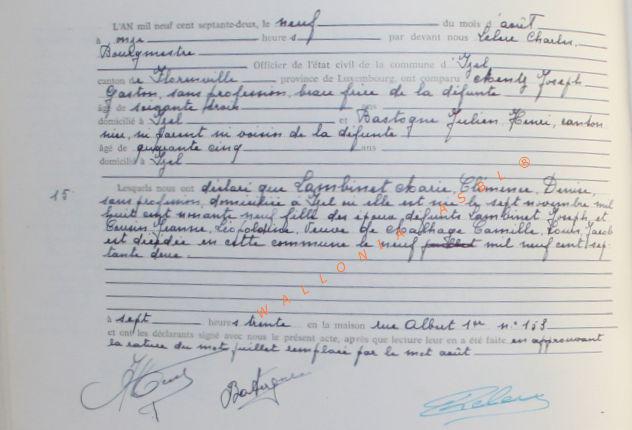 L'AN mil neuf cent septante-deux, le neuf du mois d'août
à onze heures par devant nous Lelux Charles,
Bourgmestre
Officier de l'état civil de la commune d'Izel
canton de Florenville, province de Luxembourg, ont comparu Mentz Joseph,
Gaston, sans profession, beau frère de la défunte
âgé de soixante trois ans
domicilié à Izel et Bastogne Julien, Henri, canton
nier, ni parent ni voisin de la défunte
âgé de quarante cinq ans
domicilié à Izel
15 Lesquels nous ont déclaré que Lambinet Marie, Clémence, Denise,
sans profession, domiciliée à Izel où elle est née le sept novembre mil
huit cent nonante neuf fille des époux défunts Lambinet Joseph et
Jeanne, Léopoldine, Veuve de Camille, Louis, Jacob
est décédée en cette commune le neuf juillet mil neuf cent sep-
tante deux.
à sept heures trente en la maison rue Albert 1er n° 153
et ont les déclarants signé avec nous le présent acte, après que lecture leur en a été faite en approuvant
la rature du mot juillet remplacé par le mot août
WALLONIA ASBL ®